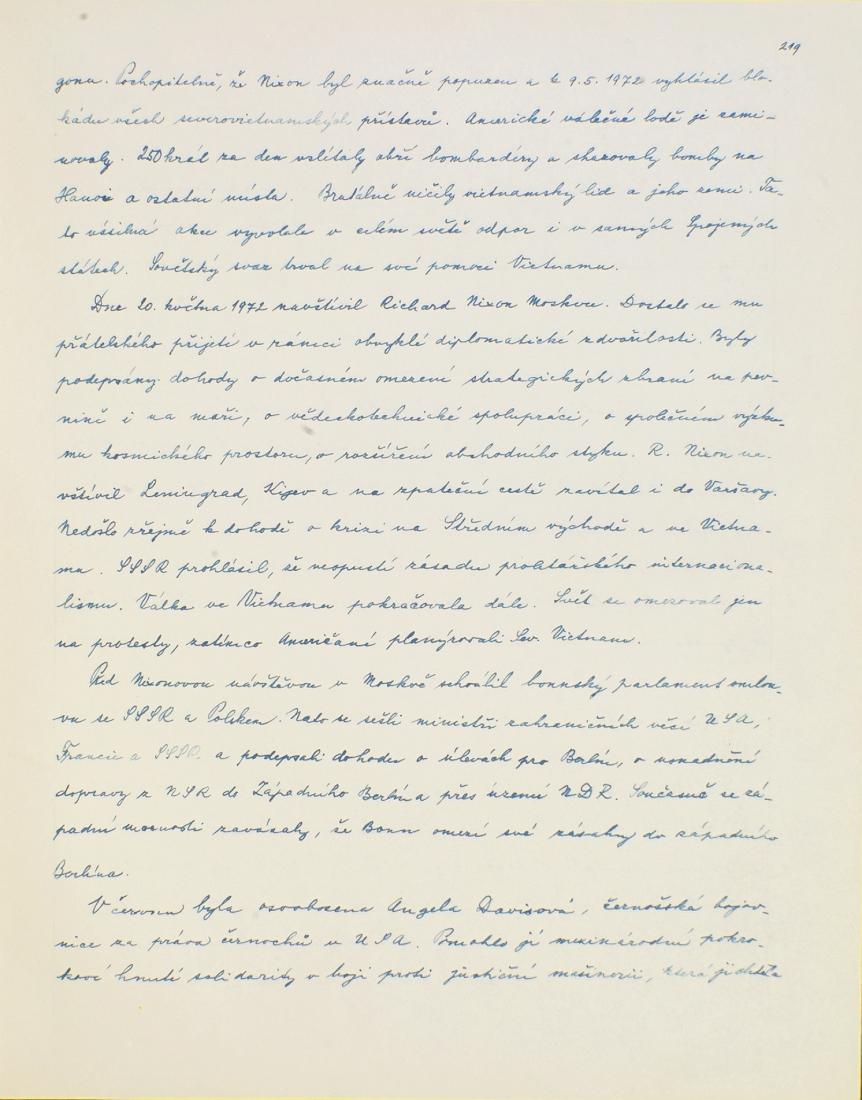 219
gonu. Pochopitelně, že Nixon byl značně popuzen a k 9.5. 1972 vyhlásil blo-
kádu všech severovietnamských přístavů. Americké válečné lodě je zami-
novaly. 250krát za den vzlítaly obří bombardéry a shazovaly bomby na
Hanoi a ostatní místa. Brutálně ničily vietnamský lid a jeho zemi. Ta-
to všivá akce vyvolala v celém světě odpor i v samých Spojených
státech. Sovětský svaz trval na své pomoci Vietnamu.
Dne 20. května 1972 navštívil Richard Nixon Moskvu. Dostalo se mu
přátelského přijetí v rámci obvyklé diplomatické zdvořilosti. Byly
podepsány dohody o dočasném omezení strategických zbraní na pev-
nině i na moři, o vědeckotechnické spolupráci, o společném výzku-
mu kosmického prostoru, o rozšíření obchodního styku. R. Nixon na-
vštívil Leningrad, Kijev a na zpáteční cestě zavítal i do Varšavy.
Nedošlo zřejmě k dohodě o krizi na Středním východě a ve Vietna-
mu. SSSR prohlásil, že neopustí zásadu proletářského internaciona-
lismu. Válka ve Vietnamu pokračovala dále. Svět se omezoval jen
na protesty, zatímco Američané planýrovali Sev. Vietnam.
Před Nixonovou návštěvou v Moskvě schválil bonnský parlament smlou-
vu se SSSR a Polskem. Nato se sešli ministři zahraničních věcí USA,
Francie a SSSR a podepsali dohodu o úlevách pro Berlín, o usnadnění
dopravy z NSR do Západního Berlína přes území NDR. Současně se zá-
padní mocnosti zavázaly, že Bonn omezí své zásahy do západního
Berlína.
V červnu byla osvobozena Angela Davisová, černošská bojov-
nice za práva černochů v USA. Pomohlo jí mezinárodní pokro-
kové hnutí solidarity v boji proti justiční mašinerii, která ji chtěla